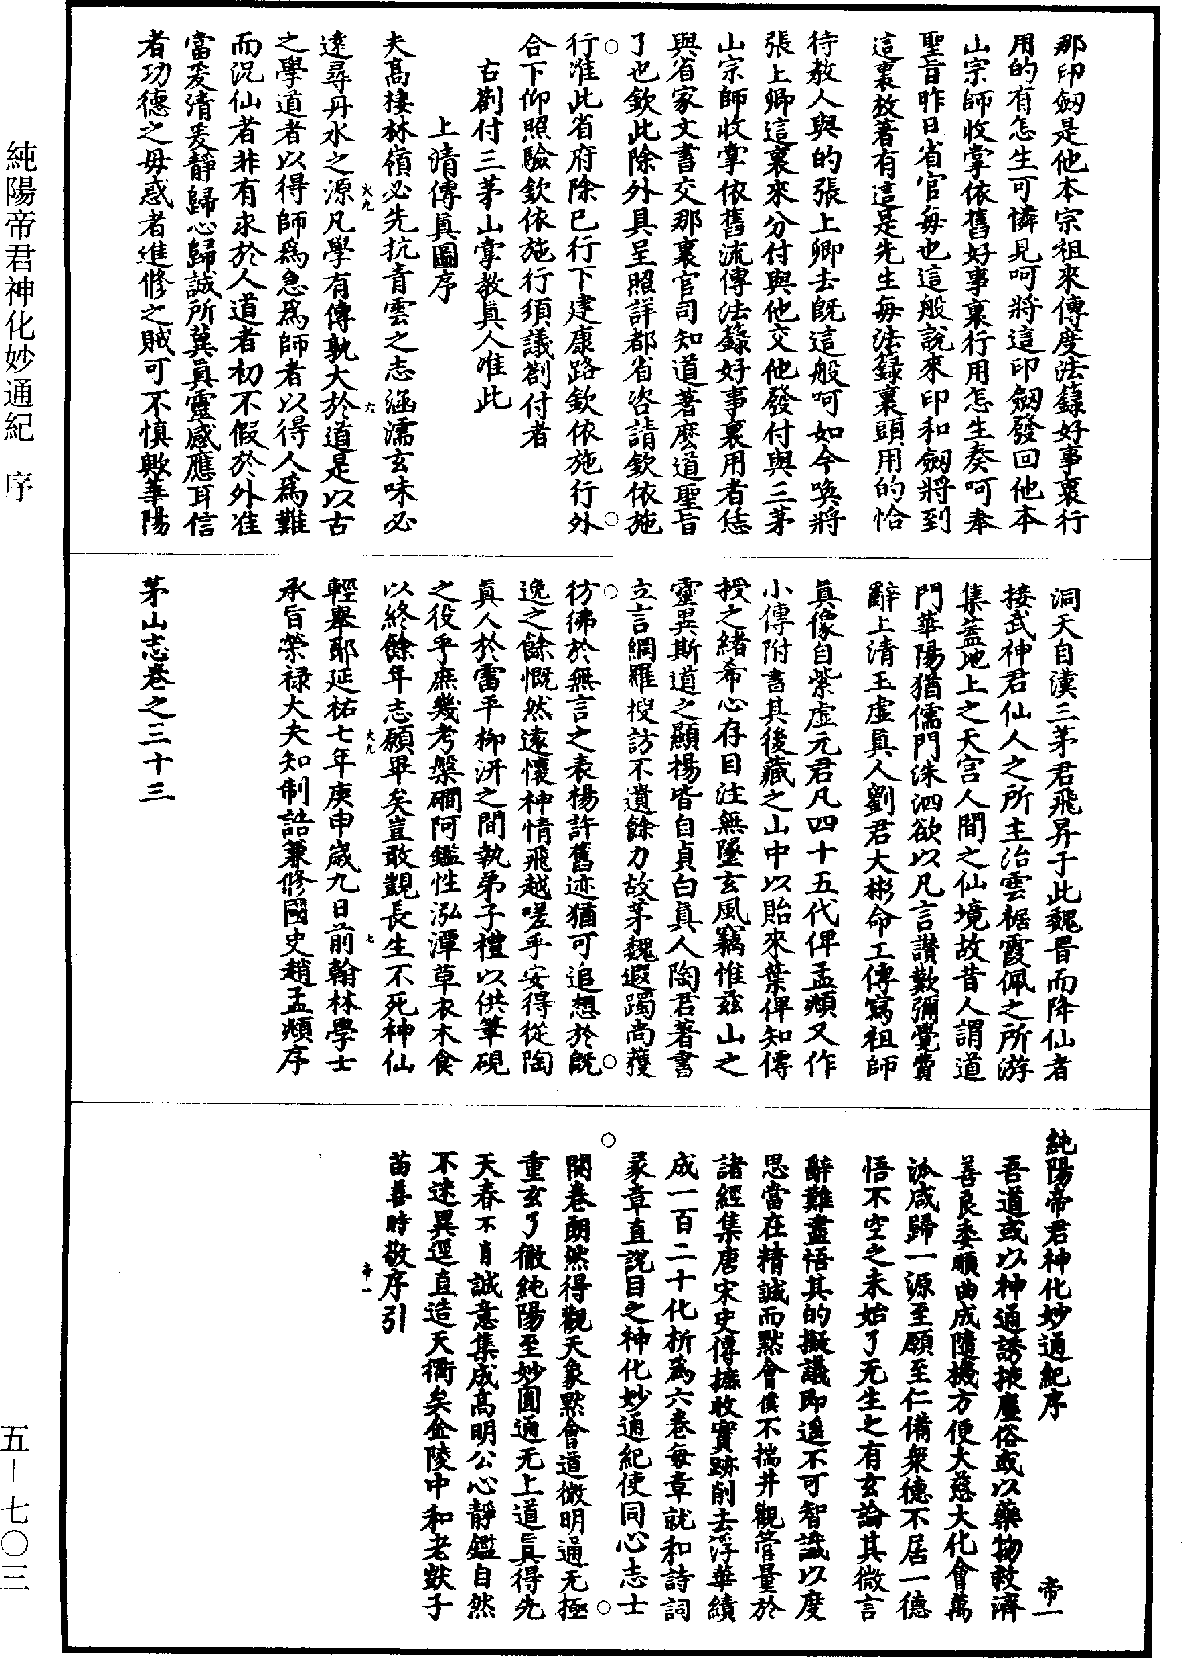 那印劔是他本宗祖來傳度法籙好事裏行
用的有怎生可憐見呵將這印劔發回他本
山宗師收掌依舊好事裏行用怎生奏呵奉
聖旨昨日省官每也這般說來印和劔將到
這裏放著有這是先生每法籙裏頭用的恰
待教人與的張上卿去旣這般呵如今喚將
張上卿這裏來分付與他交他發付與三茅
山宗師收掌依舊流傳法籙好事裏用者恁
與省家文書交那裏官司知道著麽道聖旨
了也欽此除外具呈照詳都省咨請欽依施
行准此省府除已行下建康路欽依施行外
合下仰照驗欽依施行須議劄付者
右劄付三茅山掌教眞人准此
上清傳眞圖序
夫高棲林嶺必先抗青雲之志涵濡玄味必
遠尋丹水之源凡學有傳孰大於道是以古
之學道者以得師爲急爲師者以得人爲難
而況仙者非有求於人道者初不假於外准
當爰清爰靜歸心歸誠所冀眞靈感應耳信
者功德之母惑者進修之賊可不慎歟華陽
洞天自漢三茅君飛昇于此魏晉而降仙者
接武神君仙人之所主治雲裾霞佩之所游
集蓋地上之天宫人間之仙境故昔人謂道
門華陽猶儒門洙泗欲以凡言讃歎彌覺費
辭上清玉虛眞人劉君大彬命工傳寫祖師
眞像自紫虛元君凡四十五代俾孟頫又作
小傳附書其後藏之山中以貽來葉俾知傳
授之緒希心存目注無墜玄風竊惟茲山之
靈異斯道之顯楊皆自貞白眞人陶君著書
立言網羅搜訪不遺餘力故茅魏遐躅尚獲
彷彿於無言之表楊許舊迹猶可追想於旣
逸之餘慨然遠懷神情飛越嗟乎安得從陶
眞人於雷平柳汧之間執弟子禮以供筆硯
之役乎庶幾考槃磵阿鑑性泓潭草衣木食
以終餘年志願畢矣豈敢覬長生不死神仙
輕舉耶延祐七年庚申歲九日前翰林學士
承旨榮祿大夫知制誥兼修國史趙孟頫序
茅山志卷之三十三
純陽帝君神化妙通紀序 帝一
吾道或以神通誘掖塵俗或以藥物救濟
善良委順曲成隨機方便大慈大化會萬
派咸歸一源至願至仁備衆德不居一德
悟不空之未始了无生之有玄論其微言
辭難盡悟其的擬議即遥不可智識以度
思當在精誠而黙會僕不揣井觀管量於
諸經集唐宋史傳摭收實跡削去浮華績
成一百二十化析爲六卷每章就和詩詞
彖章直說目之神化妙通紀使同心志士
開卷朗然得觀天象黙會道微明通无極
重玄了徹純陽至妙圓通无上道眞得先
天春不肖誠意集成高明公心靜鑑自然
不迷異逕直造天衢矣金陵中和老㺐子
苗善時敬序引
純陽帝君神化妙通紀 序
五—七〇三